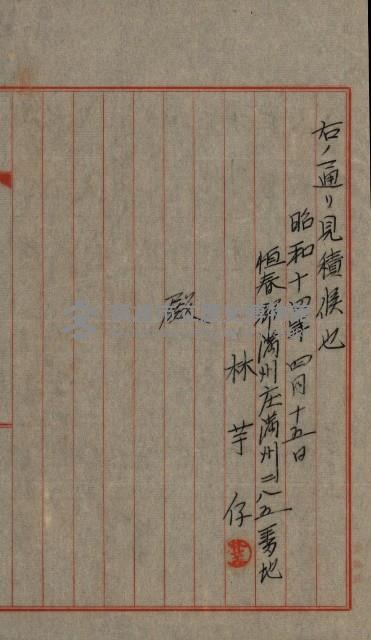 右ノ通リ見積候也
昭和十四年四月十五日
恒春郡満州庄満州二八五番地
林芋仔
殿